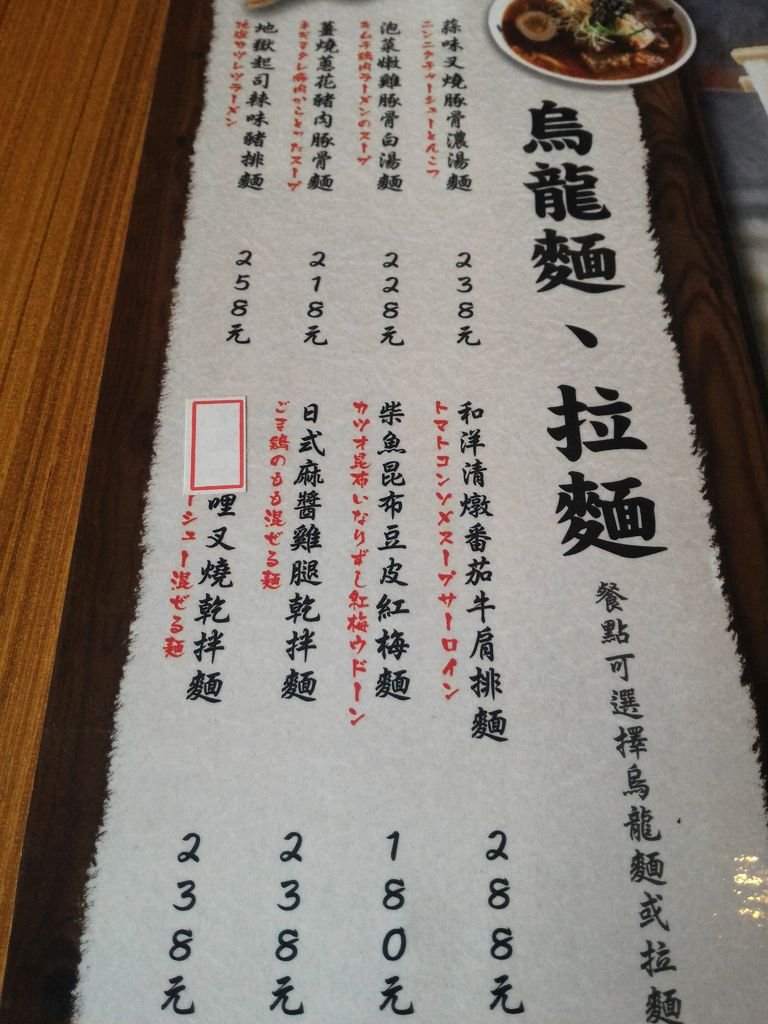 烏龍麵、拉麵
餐點可選擇烏龍麵或拉麵
蒜味叉燒豚骨濃湯麵
ニンニクチャーシューとんこつ
238元
泡菜嫩雞豚骨白湯麵
キムチ鶏肉ラーメンのスープ
228元
薑燒蔥花豬肉豚骨麵
218元
地獄起司辣味豬排麵
地獄カツレツラーメン
258元
和洋清燉番茄牛肩排麵
トマトコンソメスープサーロイン
288元
柴魚昆布豆皮紅梅麵
カツオ昆布いなりずし紅梅ウドーン
180元
日式麻醬雞腿乾拌麵
ごま鶏のもも混ぜる麺
238元
哩叉燒乾拌麵
ーシュー混ぜる麺
238元